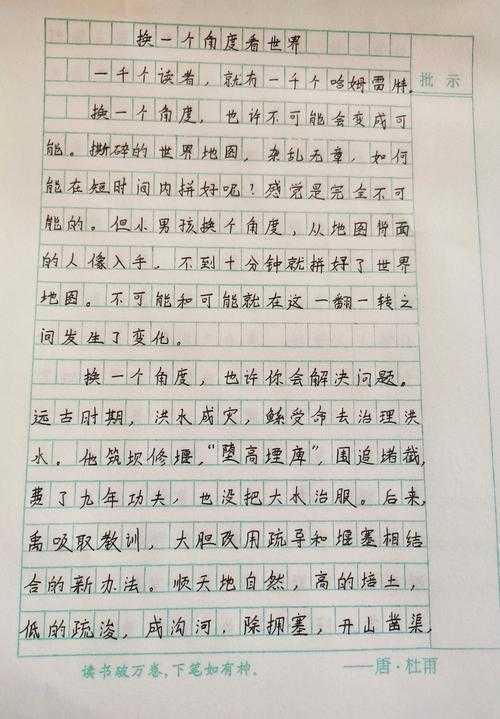 换一个角度看世界
一千个读者，就有一千个哈姆雷特。
批示
换一个角度，也许不可能会变成可
能。撕碎的世界地图，杂乱无章，如何
能在短时间内拼好呢？感觉是完全不可
能的。但小男孩换个角度，从地图背面
的人像入手，不到十分钟就拼好了世界
地图。不可能和可能就在这一翻一转之
间发生了变化。
换一个角度，也许你会解决问题。
远古时期，洪水成灾，鲧受命去治理洪
水。他筑坝修堰，“堕高堙庳”，围追堵截，
费了九年功夫，也没把大水治服。后来，
禹吸取教训，大胆改用疏导和堰塞相结
合的新办法。顺天地自然，高的培土，
低的疏浚，成沟河，除拥塞，开山凿渠，
读书破万卷，下笔如有神。 ——唐·杜甫